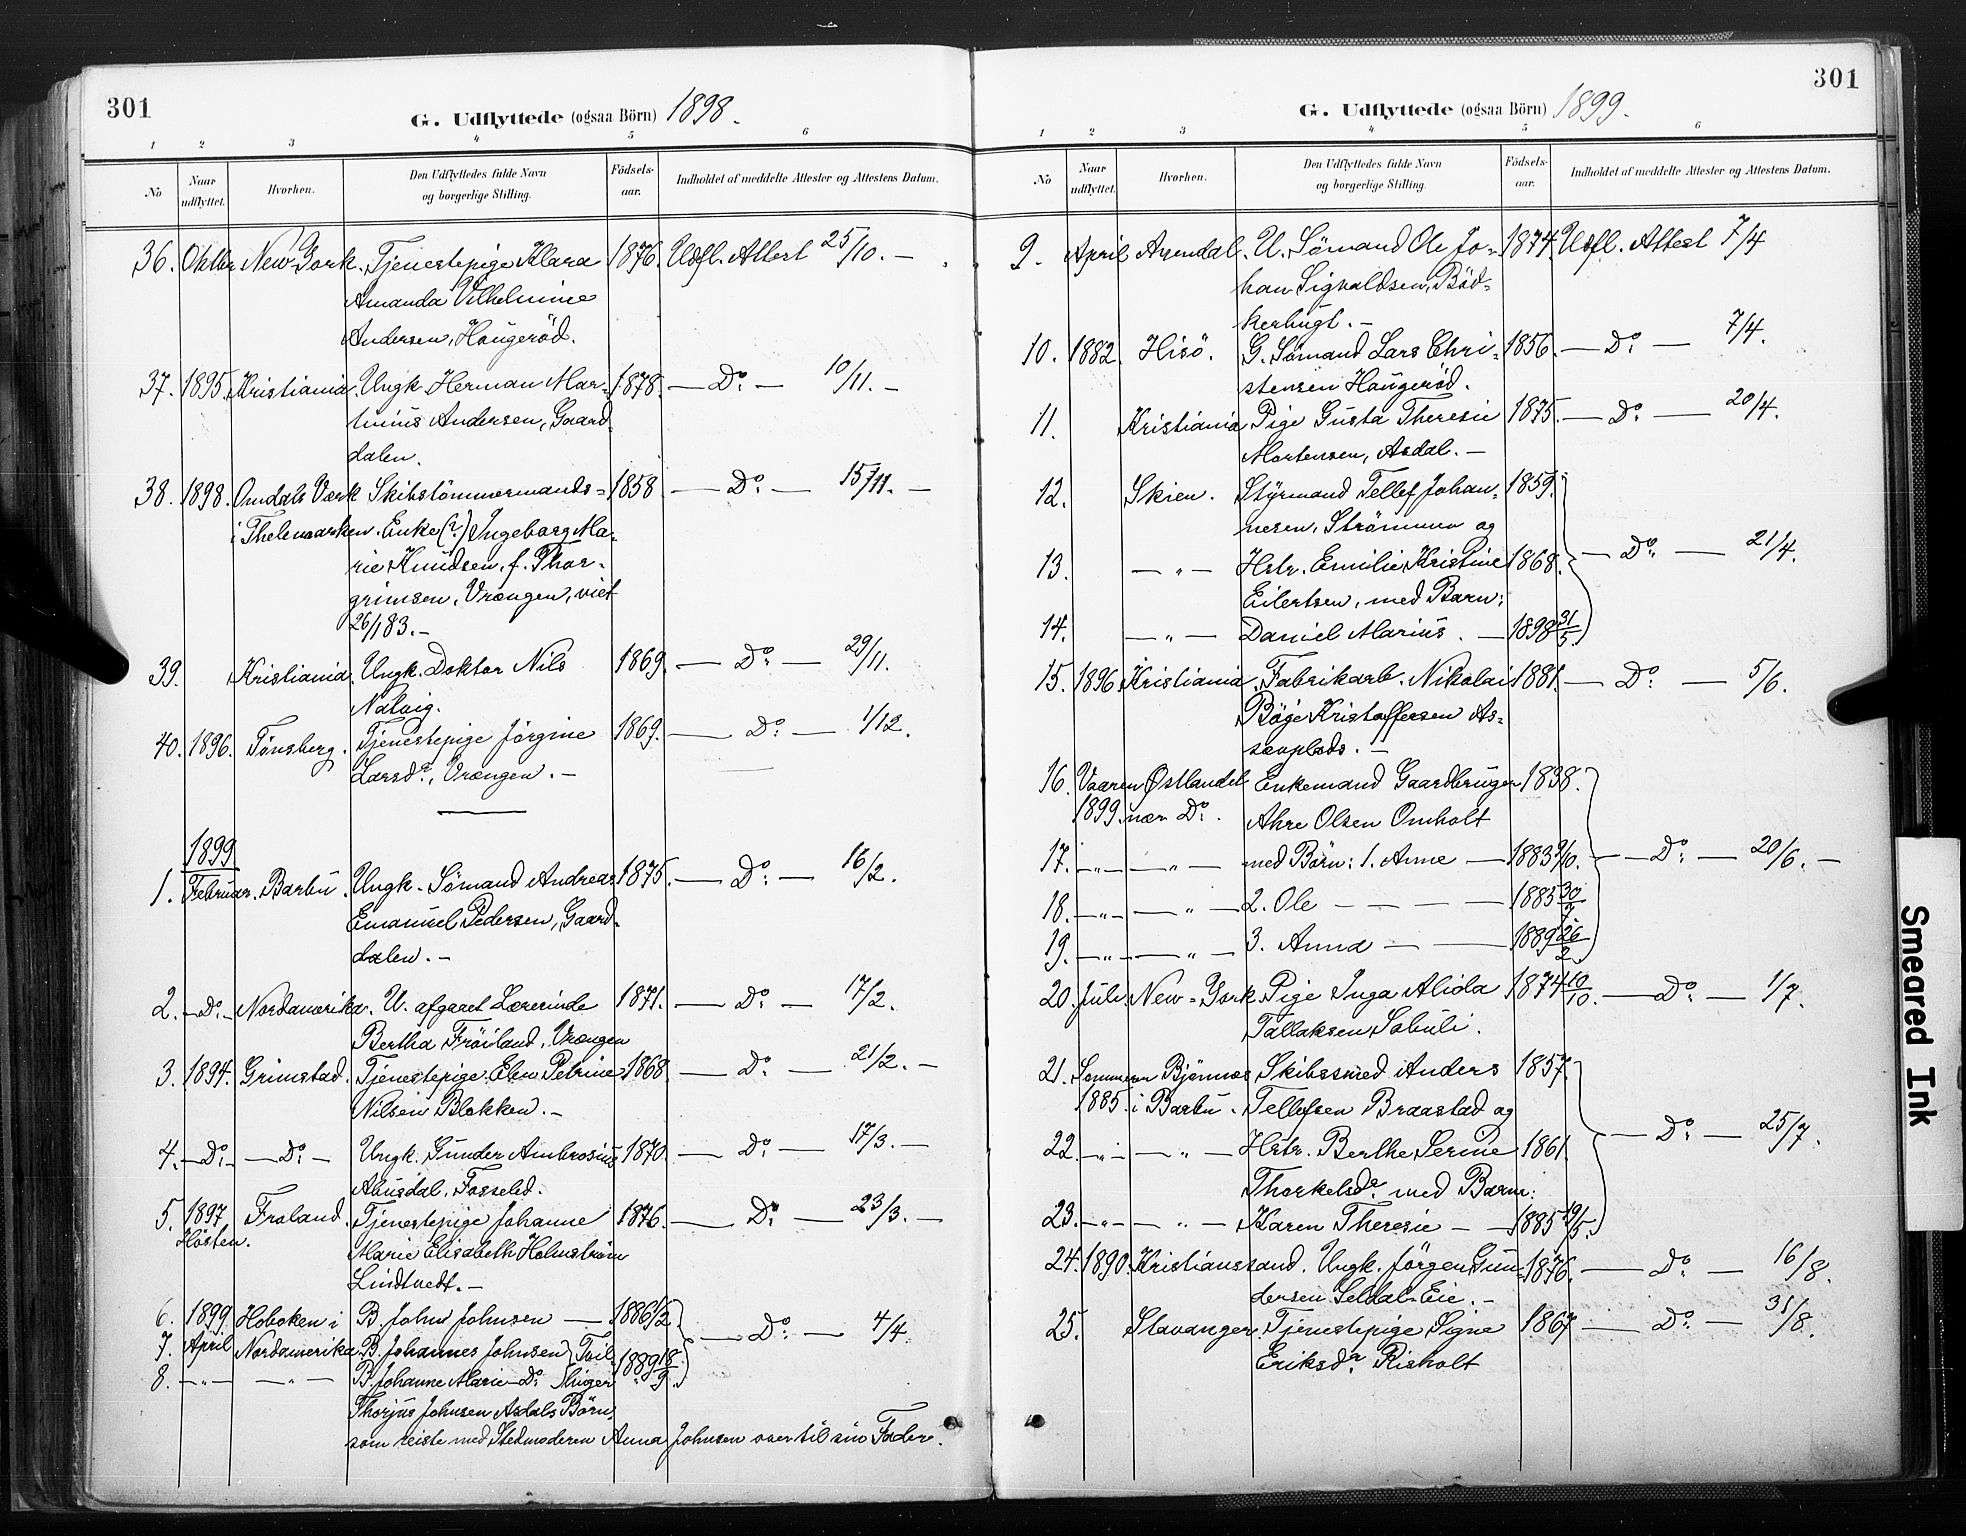 301
G. Udflyttede (ogsaa Börn) 1898.
1 2 3 4 5 6
No Naar udflyttet. Hvorhen. Den Udflyttedes fulde Navn og borgerlige Stilling. Fødsels-aar. Indholdet af meddelte Attester og Attestens Datum.
36. Oktbr New York. Tjenestepige Klara 1876. Udfl. Attest 25/10. —
Amanda Vilhelmine
Andersen, Haugeröd.
37. 1895. Kristiania. Ungk. Herman Mar- 1878. — Do — 10/11. —
tinius Andersen, Gaard-
dalen.
38. 1898. Omdals Værk Skibstömmermands- 1858. — Do: — 15/11. —
i Thelemarken. Enke (?) Ingeborg Ma-
rie Knudsen, f. Thor-
grimsen, Vrængen, viet
26/1 83. —
39. Kristiania. Ungk. Doktor Nils 1869. — Do: — 29/11.
Natvig.
40. 1896. Tönsberg. Tjenestepige Jörgine 1869. — Do: — 1/12.
Larsdr., Vrængen. —
1899
1. Februar. Barbu. Ungk. Sömand Andreas 1875. — Do: — 16/2.
Emanuel Pedersen, Gaard-
dalen. —
2. — Do: — Nordamerika. U. afgaaet Lærerinde 1871. — Do: — 17/2.
Bertha Fröiland, Vrængen
3. 1894. Grimstad. Tjenestepige Elen Petrine 1868. — Do: — 21/2. —
Nilsen Blekken. —
4. — Do: — — Do: — Ungk. Gunder Ambrosius 1870. — Do: — 17/3. —
Abusdal, Fosseled.
5. 1897 Froland. Tjenestepige Johanne 1876. — Do: — 23/3. —
Hösten. Marie Elisabeth Holmström
Lindtvedt. —
6. 1899 Hoboken i B. John Johnsen — 1886 1/2
7. April Nordamerika. B. Johannes Johnsen } Tvil- 1889 18/9. — Do: — 4/4.
8. — " — — " — P. Johanne Marie Do: } linger
Thorjus Johnsen Asdals Börn,
som reiste med Stedmoderen Anna Johnsen over til sin Fader.
301
G. Udflyttede (ogsaa Börn) 1899.
1 2 3 4 5 6
No Naar udflyttet. Hvorhen. Den Udflyttedes fulde Navn og borgerlige Stilling. Fødsels-aar. Indholdet af meddelte Attester og Attestens Datum.
9. April Arendal. U. Sömand Ole Jo- 1874. Udfl. Attest 7/4
han Sigvaldsen, Böd-
kerbugt. —
10. 1882. Hisö. G. Sömand Lars Chri- 1856. — Do: — 7/4.
stensen Haugeröd.
11. Kristiania Pige Gusta Theresie 1875. — Do: — 20/4.
Mortensen, Asdal. —
12. Skien. Styrmand Tellef Johan- 1859.
nesen, Strömmen og
13. — " — Hstr. Emilie Kristine 1868. — Do: — 21/4.
Eilertsen, med Barn:
14. — " — Daniel Marius. — 1898 31/5.
15. 1896 Kristiania. Fabrikarb. Nikolai 1881. — Do: — 5/6.
Böge Kristoffersen As-
sævplads. —
16. Vaaren Østlandet Enkemand Gaardbruger 1838.
1899. nær Do:. Ahre Olsen Omholt
17. — " — — " — med Börn: 1. Anne — 1883 9/10. — Do: — 20/6. —
18. — " — — " — 2. Ole — — — 1885 30/7
19. — " — — " — 3. Anna — — 1889 26/2
20. Juli. New-York. Pige Inga Alida 1874 10/10. — Do: — 1/7.
Tallaksen, Sabuli.
21. Sommeren Bjönnes Skibssmed Anders 1857.
1885. i Barbu. Tellefsen Braastad og
22. — " — — " — Hstr. Berthe Serine 1861. — Do: — 25/7.
Thorkelsdr. med Barn:
23. — " — — " — Karen Theresie — — 1885 19/5.
24. 1890. Kristianssand. Ungk. Jörgen Gun- 1876. — Do: — 16/8.
dersen Seldal-Eie. —
25. Stavanger. Tjenestepige Signe 1867 — Do: — 31/8.
Eriksdr. Risholt
Smeared Ink